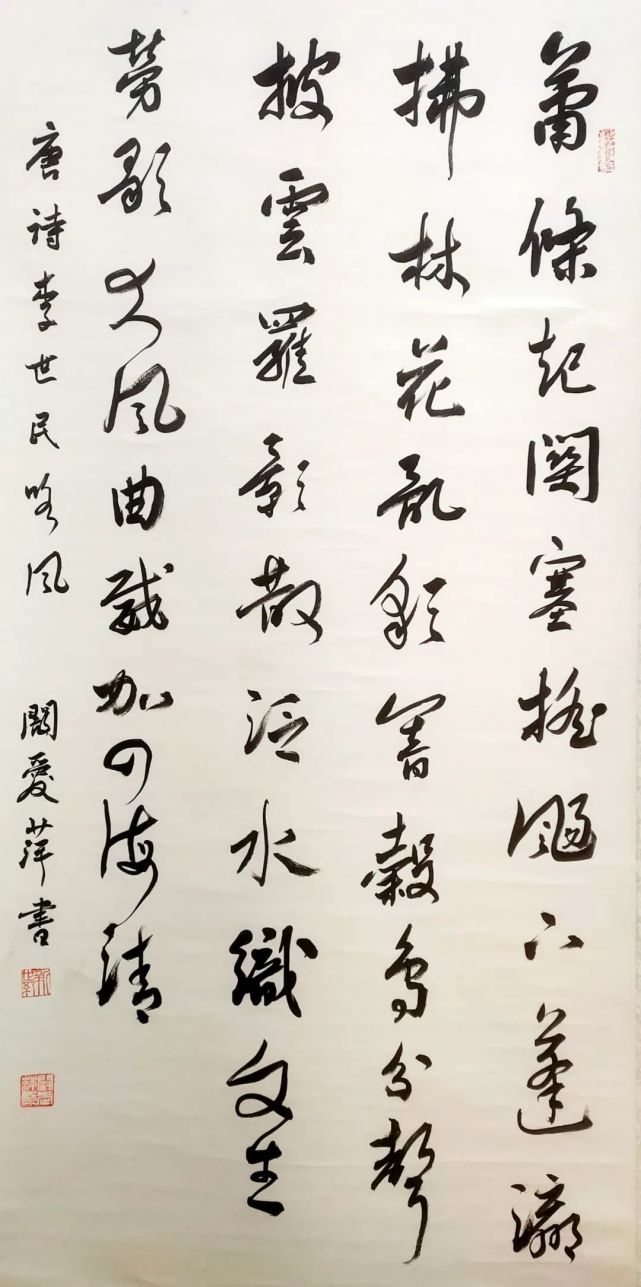 蕭條起關塞搖颺下蓬瀛
拂林花亂彩響穀鳥分聲
披雲羅影散泛水織文生
勞歌大風曲威加四海清
唐詩李世民咏風 闞愛萍書